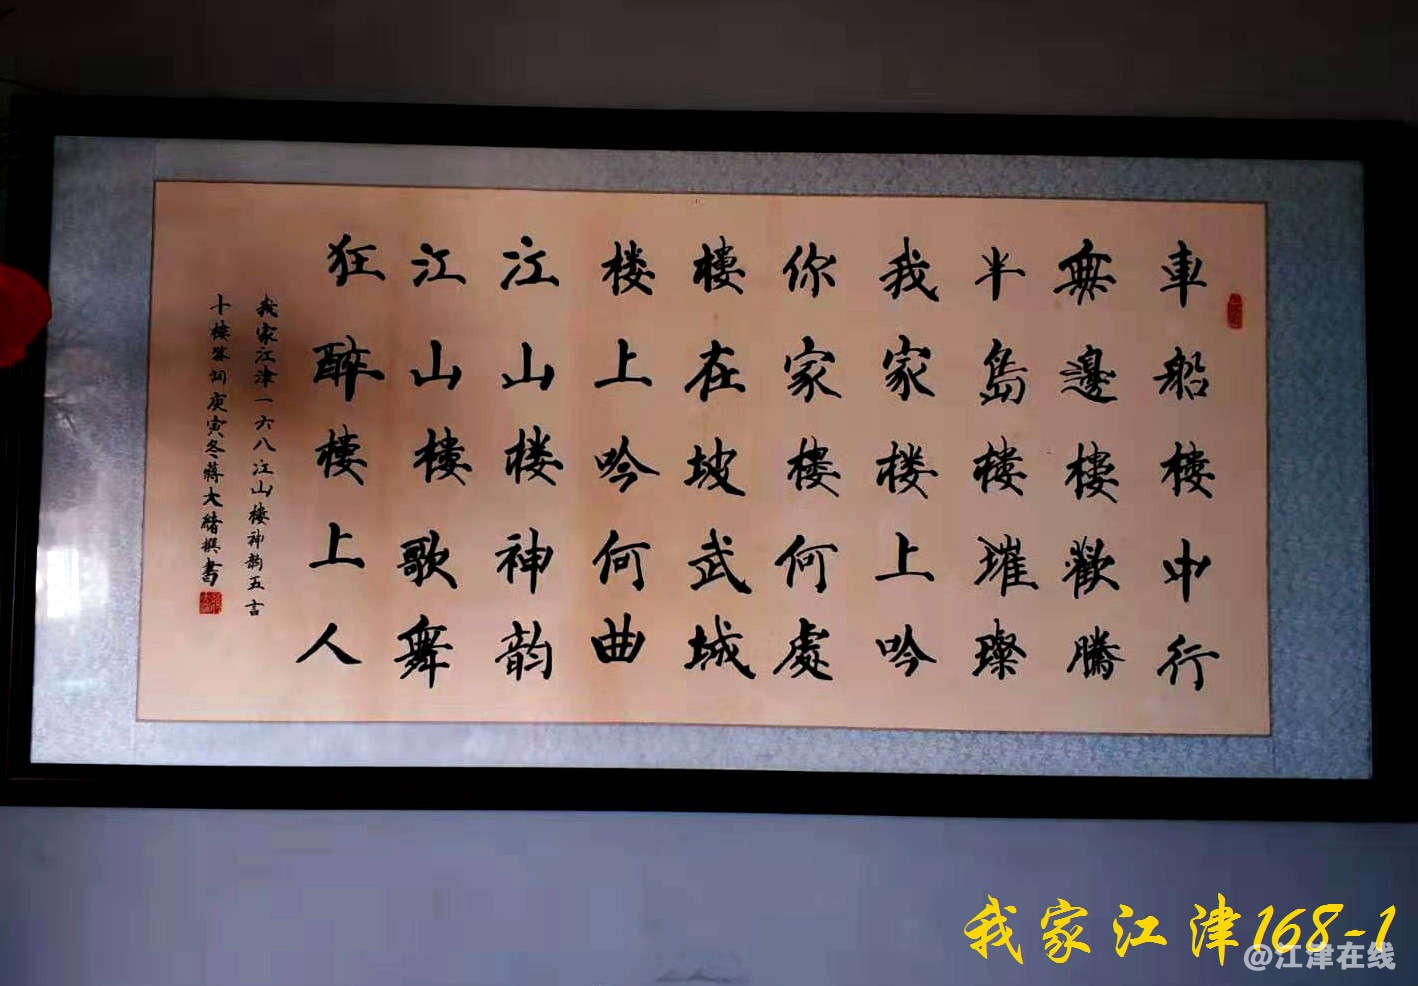 車船樓中行
無邊樓歡騰
半島楼璀璨
我家楼上吟
你家樓何處
樓在坡武城
楼上吟何曲
江山楼神韵
江山樓歌舞
狂醉樓上人
我家江津一六八江山楼神韵五言
十樓 詞庚寅冬蔣大 撰書
我家江津168-1
@江津在线